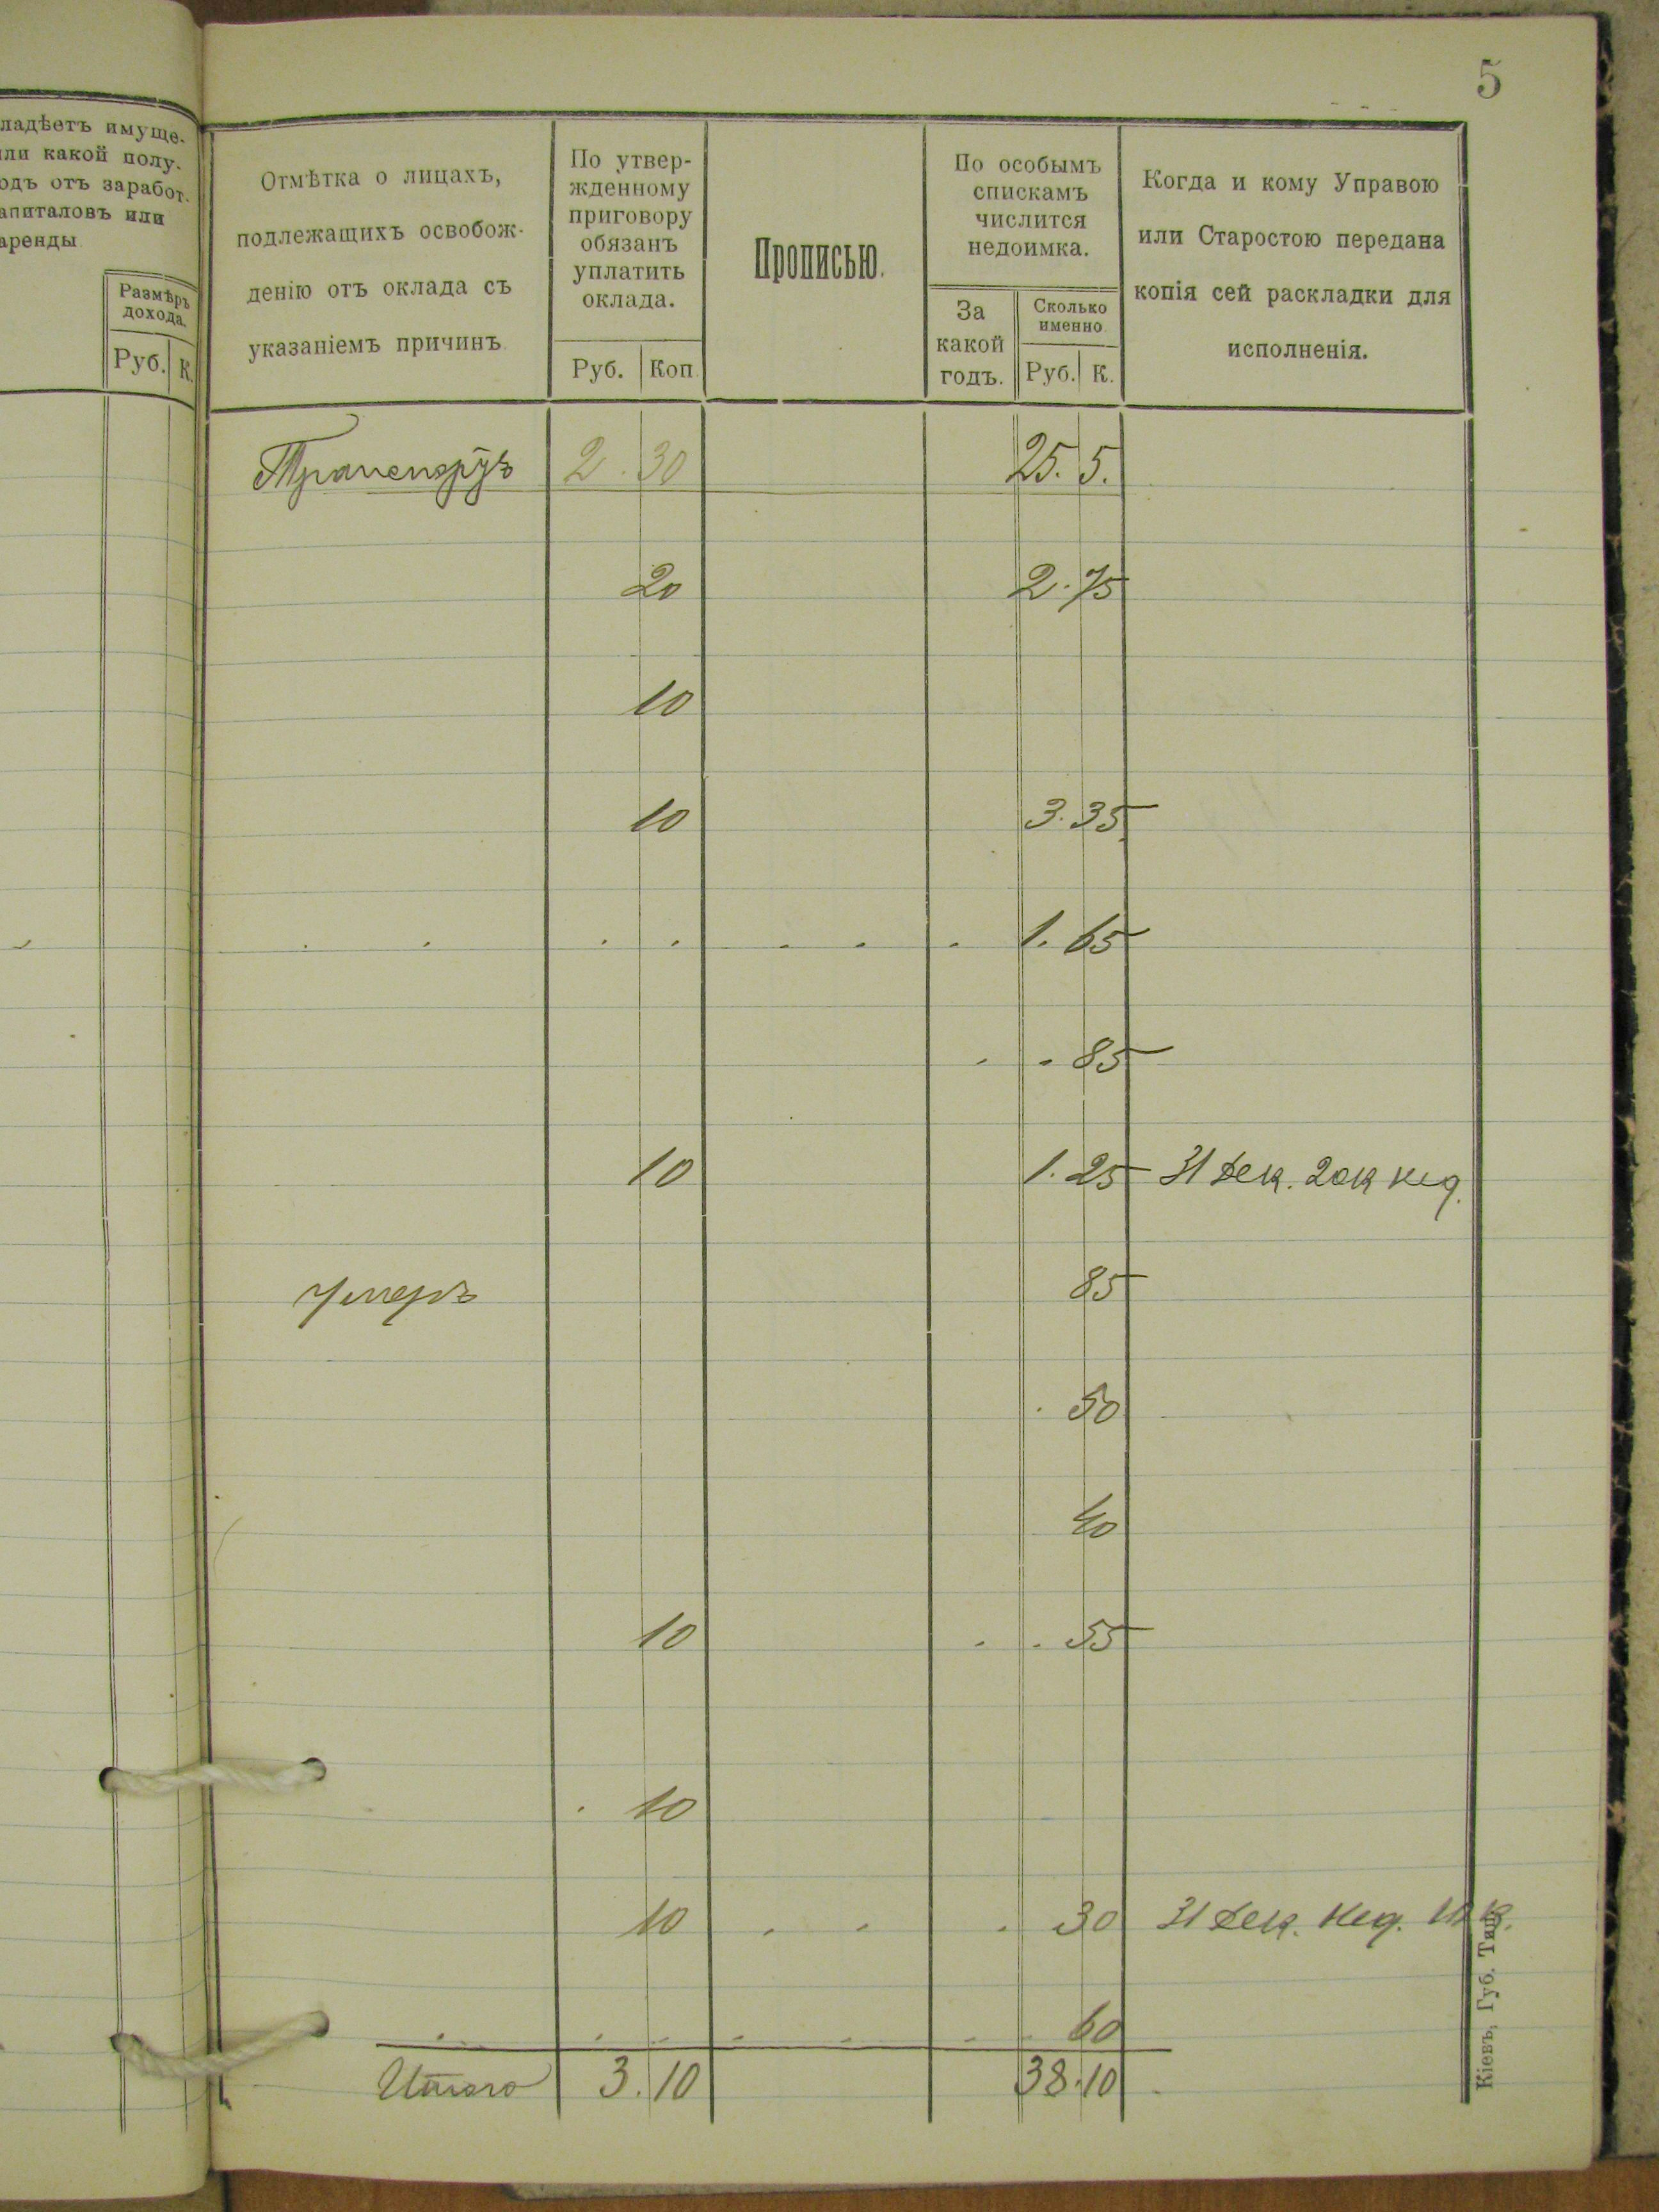 5
ладѣетъ имуще-
или какой полу-
одъ отъ заработ-
апиталовъ или
аренды
Размѣръ
дохода.
Руб. К.
Отмѣтка о лицахъ,
подлежащихъ освобож-
денію отъ оклада съ
указаніемъ причинъ
По утвер-
жденному
приговору
обязанъ
уплатить
оклада.
Руб. Коп.
Прописью.
По особымъ
спискамъ
числится
недоимка.
За
какой
годъ.
Сколько
именно.
Руб. К.
Когда и кому Управою
или Старостою передана
копія сей раскладки для
исполненія.
Транспортъ 2. 30 25. 5.
20 2. 75
10
10 3. 35
1. 65
85
10 1. 25 31 Дек. 20к нед.
умеръ 85
50
40
10 55
10
10 30 31 Дек. нед. 10 к.
60
Итого 3. 10 38. 10
Кіевъ, Губ. Тип.